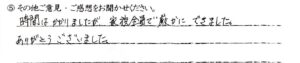 ⑤ その他ご意見・ご感想をお聞かせください。
時間はかかりましたが、家族全員で静かにできました。
ありがとうございました。